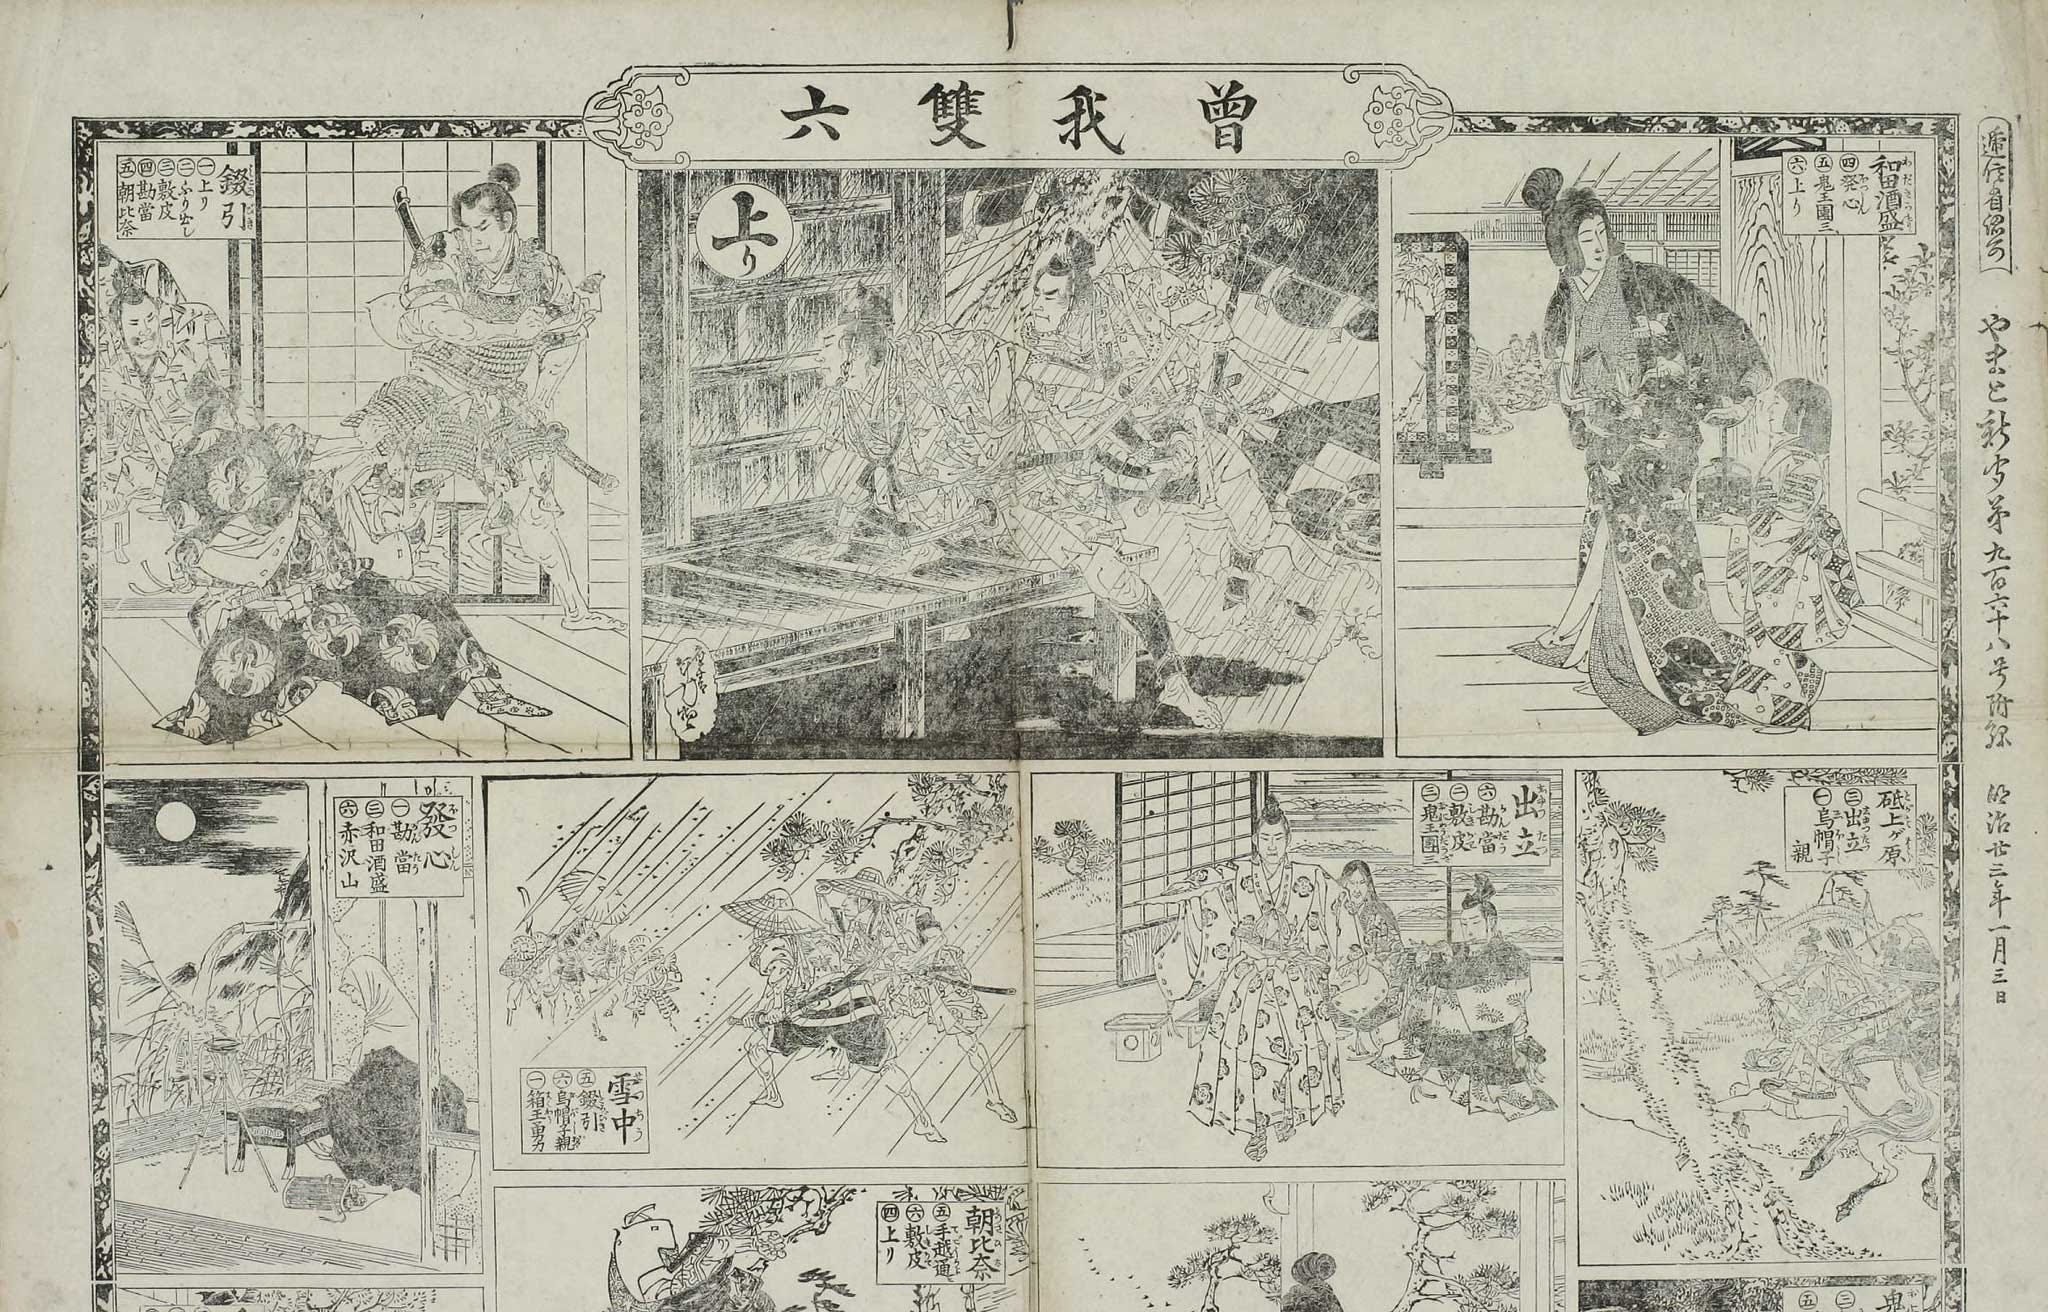 曾我雙六
逓信省認可
やまと新聞第九百六十八号附録
明治廿三年一月三日
和田酒盛
四 発心
五 鬼王團三
六 上り
上り
錣引
一 上り
二 ふり出し
三 敷皮
四 勘當
五 朝比奈
砥上ヶ原
三 出立
一 烏帽子親
出立
六 勘當
二 敷皮
三 鬼王團三
雪中
五 錣引
六 烏帽子親
一 箱王勇力
發心
一 勘當
三 和田酒盛
六 赤沢山
朝比奈
五 手越通
六 敷皮
四 上り
鬼
三
五